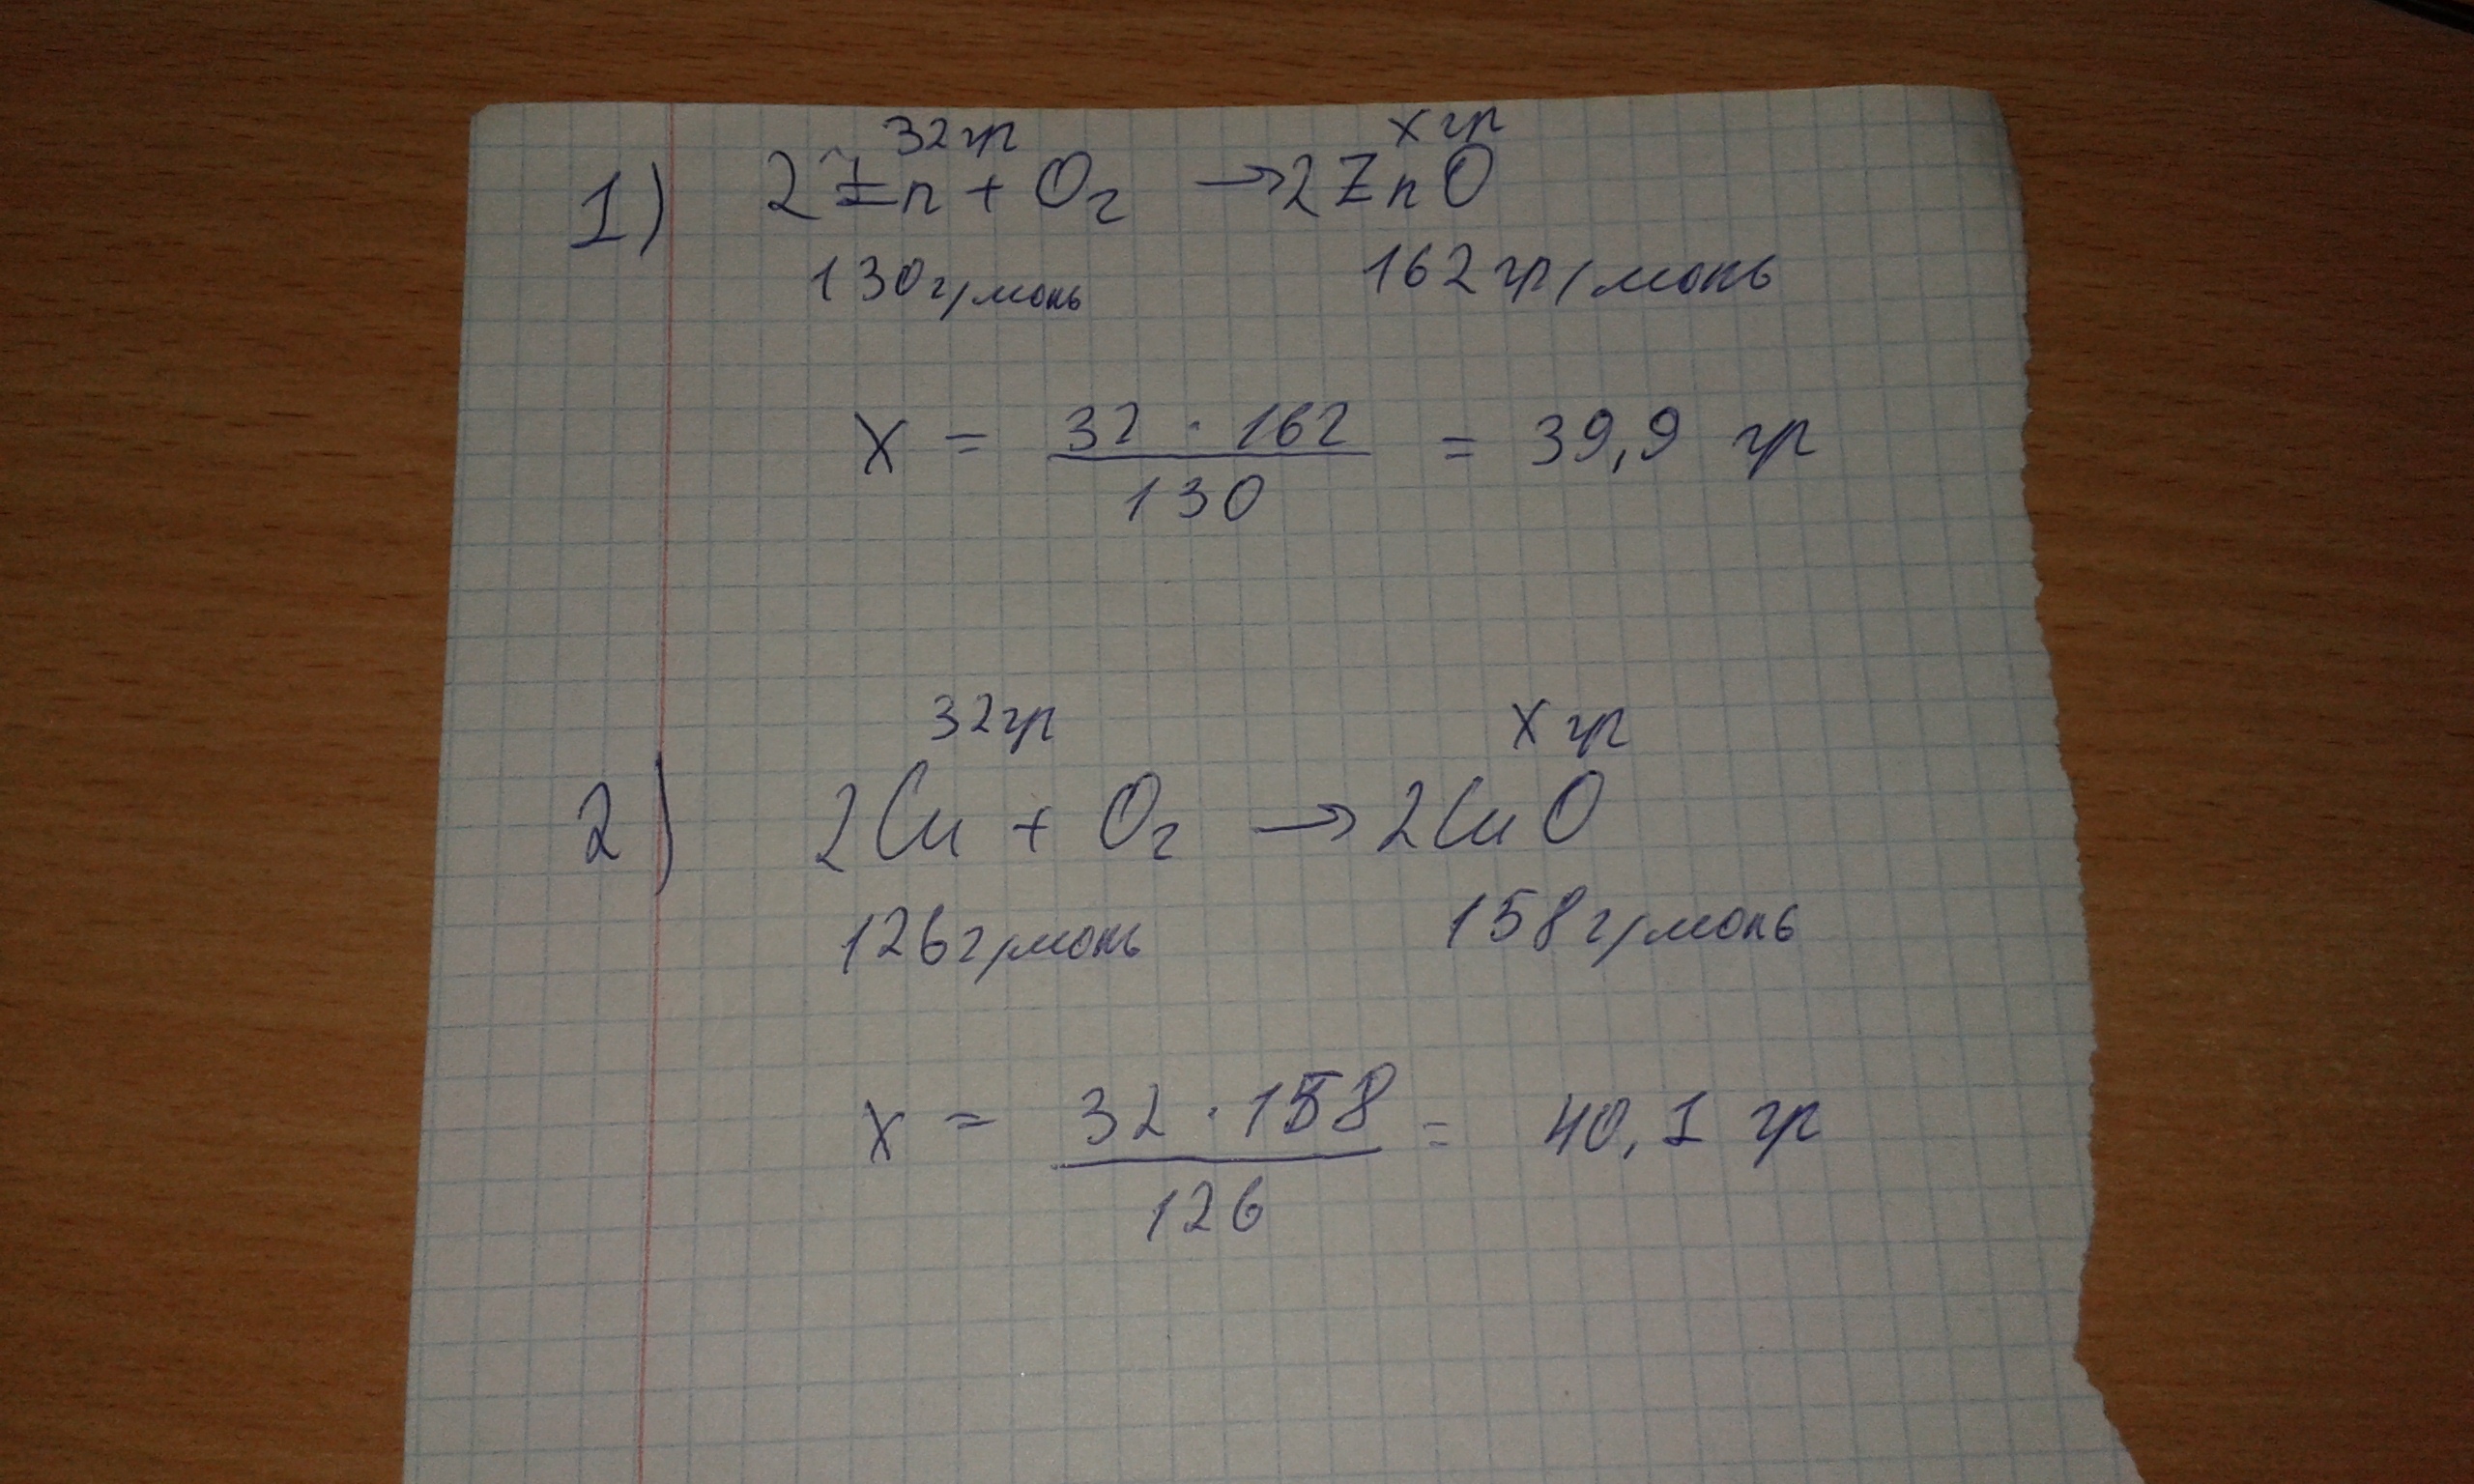 32гр хгр
1) 2Zn + O₂ → 2ZnO
130г/моль 162гр/моль
x = 32 · 162 / 130 = 39,9 гр
32гр x гр
2) 2Cu + O₂ → 2CuO
126г/моль 158г/моль
x = 32 · 158 / 126 = 40,1 гр